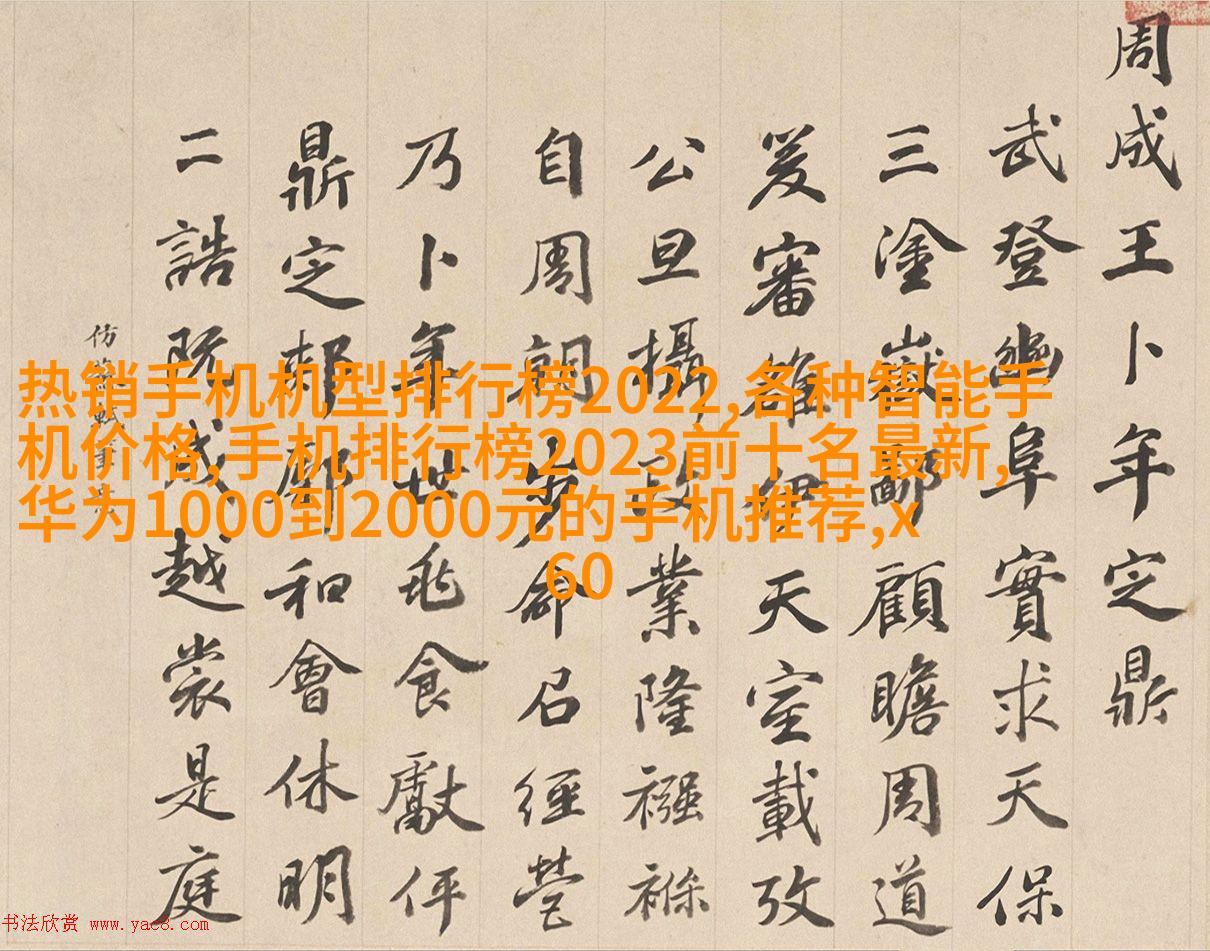 周成王卜年定鼎
武登豳阜實求天保
三塗嶽鄙顧瞻周道
爰審雒伊天室載攷
公旦攝政業隆襁褓
自周朝步命召經營
乃卜年世兆食獻伻
鼎定郟鄏和會休明
二誥既成越裳是庭
仿
热销手机机型排行榜2022,各种智能手
机价格,手机排行榜2023前十名最新,
华为1000到2000元的手机推荐,x
60
书法欣赏 www.yac8.com